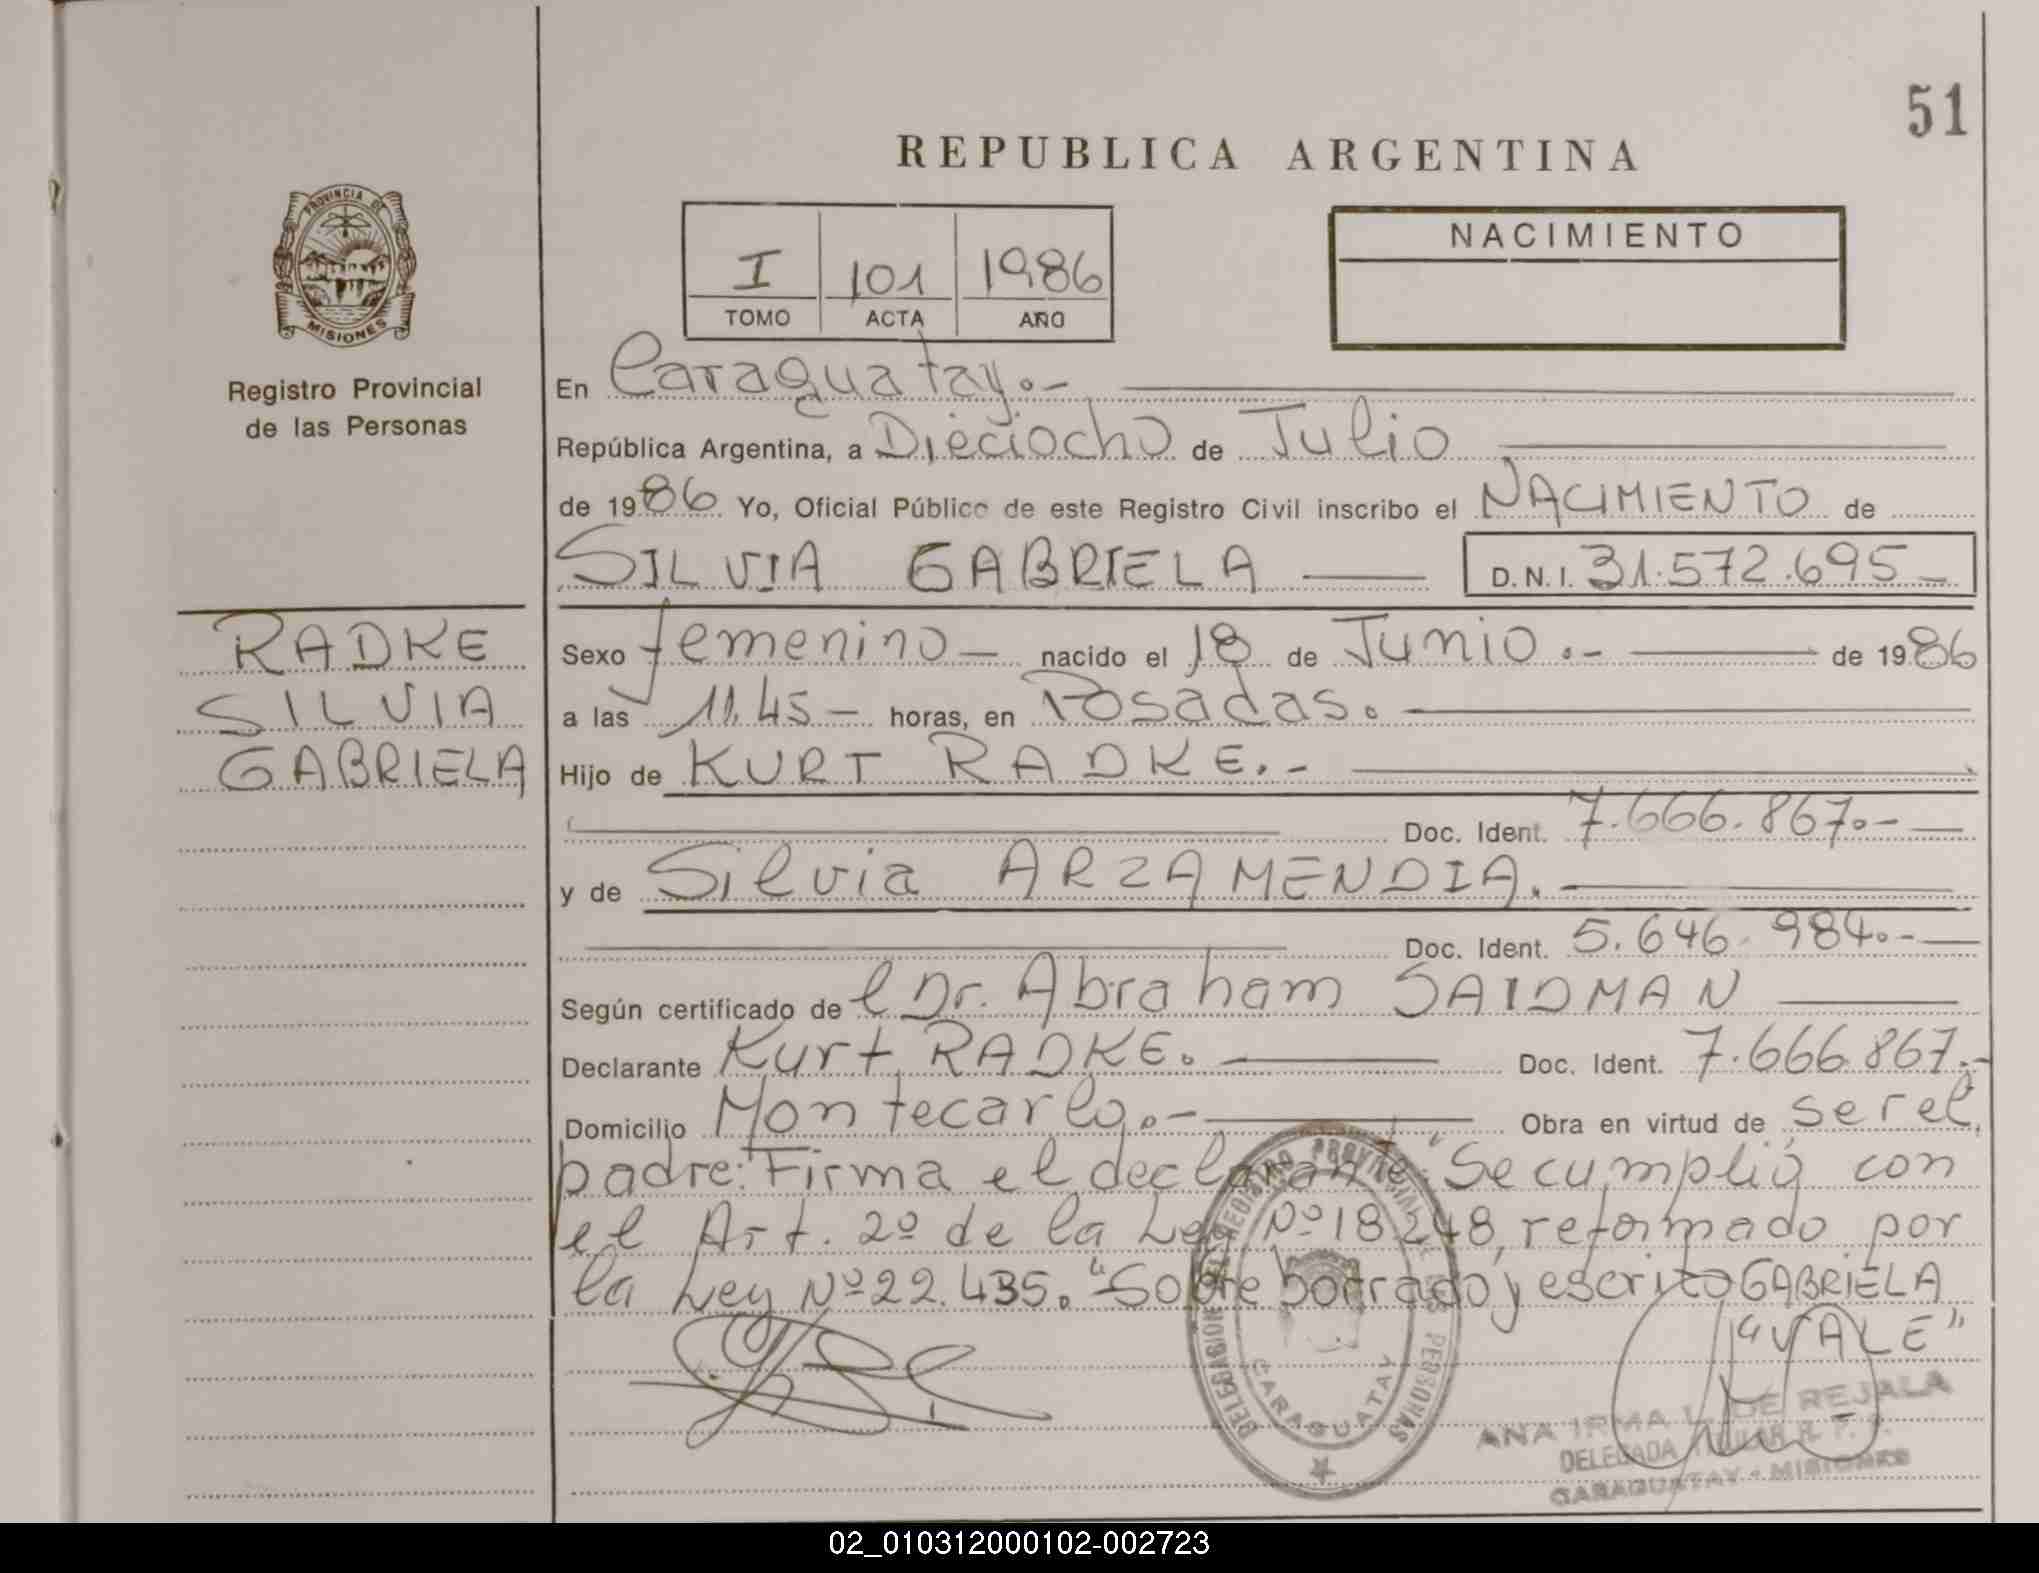 51
REPUBLICA ARGENTINA
PROVINCIA DE
MISIONES
Registro Provincial
de las Personas
I 101 1986
TOMO ACTA AÑO
NACIMIENTO
En Caraguatay.-
República Argentina, a Dieciocho de Julio
de 1986 Yo, Oficial Público de este Registro Civil inscribo el NACIMIENTO de
SILVIA GABRIELA D.N.I. 31.572.695
RADKE
SILVIA
GABRIELA
Sexo femenino nacido el 18 de Junio.- de 1986
a las 11.45 horas, en Posadas.
Hijo de KURT RADKE.-
Doc. Ident. 7.666.867.-
y de Silvia ARZAMENDIA.
Doc. Ident. 5.646.984.-
Según certificado de el Dr. Abraham SAIDMAN
Declarante Kurt RADKE. Doc. Ident. 7.666.867.-
Domicilio Montecarlo.- Obra en virtud de ser el
padre: Firma el declarante "Se cumplió con
el Art. 2º de la Ley Nº 18.248, reformado por
la Ley Nº 22.435." Sobre borrado y escrito GABRIELA
"VALE"
REGISTRO PROVINCIAL DE LAS PERSONAS
CARAGUATAY
ANA IRMA L. DE REJALA
DELEGADA TITULAR R. P. P.
CARAGUATAY - MISIONES
02_010312000102-002723